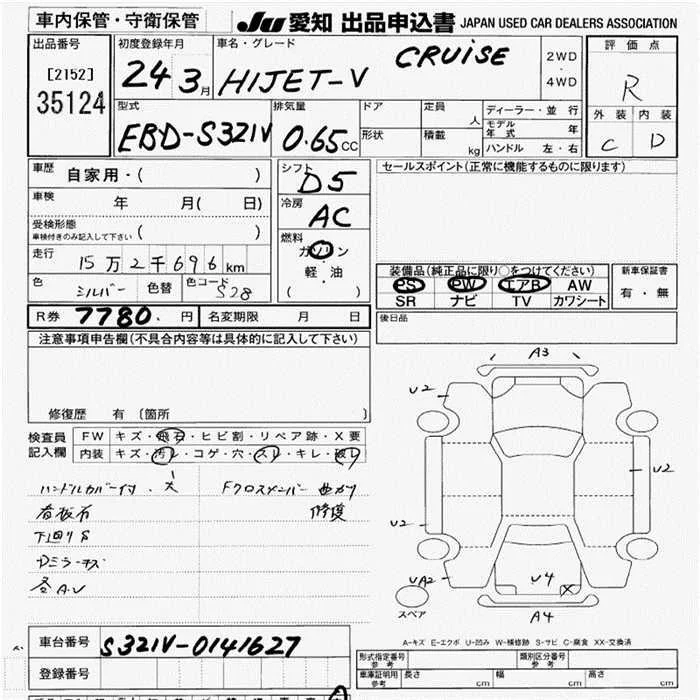 車内保管・守衛保管
JU 愛知 出品申込書 JAPAN USED CAR DEALERS ASSOCIATION
出品番号
[2152]
35124
初度登録年月
24 3月
車名・グレード
HIJET-V CRUISE
2WD
・
4WD
評価点
R
外装 内装
C D
型式
EBD-S321V
排気量
0.65cc
ドア
形状
定員 人
積載 kg
ディーラー・並行
モデル年式 年
ハンドル 左・右
車歴 自家用・( )
車検 年 月( 日)
受検形態
車検付きのみ記入して下さい ( )
走行 15万2千696km
色 シルバー 色替 色コード S28
シフト
D5
冷房
AC
燃料
ガソリン
・
軽・油
( )
セールスポイント(正常に機能するものに限ります)
装備品(純正品に限り○をつけてください)
PS PW エアB AW
SR ナビ TV カワシート
新車保証書
有・無
R券 7780. 円 名変期限 月 日
後日品
注意事項申告欄(不具合内容等は具体的に記入して下さい)
修復歴 有 〔箇所 〕
検査員
記入欄
FW キズ・飛石・ヒビ割・リペア跡・X要
内装 キズ・汚レ・コゲ・穴・スレ・キレ・破レ
ハンドルカバー付・大
Fクロスメンバー曲がり
修復
看板有
下廻りS
Dミラーキズ
各A.U
A3
U2
U2
U2
UA2
U4
X
スペア
A4
A-キズ E-エクボ U-凹み W-補修跡 S-サビ C-腐食 XX-交換済
車台番号 S321V-0141627
登録番号
形式指定番号
参考
類別区分番号
参考
車庫証明用
参考
長さ cm 幅 cm 高さ cm